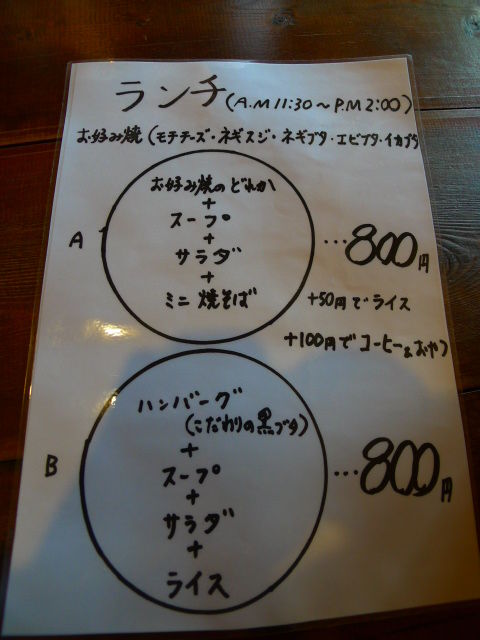 ランチ(A.M 11:30～P.M 2:00)
お好み焼(モチチーズ・ネギスジ・ネギブタ・エビブタ・イカブタ
A
お好み焼のどれか
+
スープ
+
サラダ
+
ミニ焼そば
…800円
+50円でライス
+100円でコーヒー&おやつ
B
ハンバーグ
(こだわりの黒ブタ)
+
スープ
+
サラダ
+
ライス
…800円